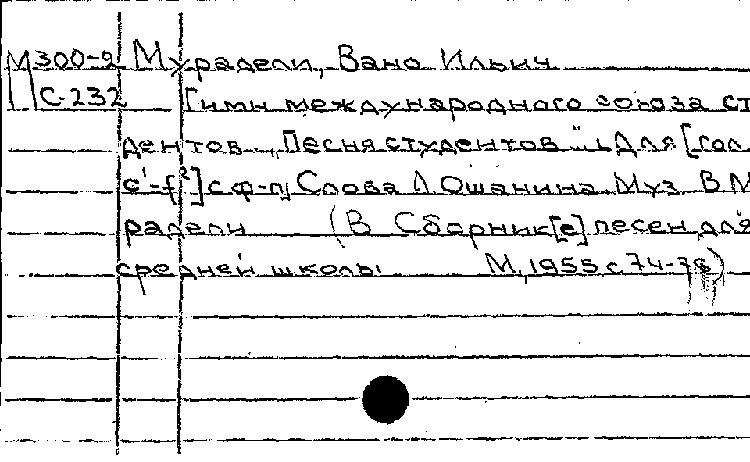 М300-2 Мурадели, Вано Ильич
С-232 Гимн международного союза ст
дентов „Песня студентов". Для [гол
c'-f²] с ф-п, Слова Л Ошанина. Муз В М
радели (В Сборник[е] песен для
средней школы М, 1955 с. 74-76)